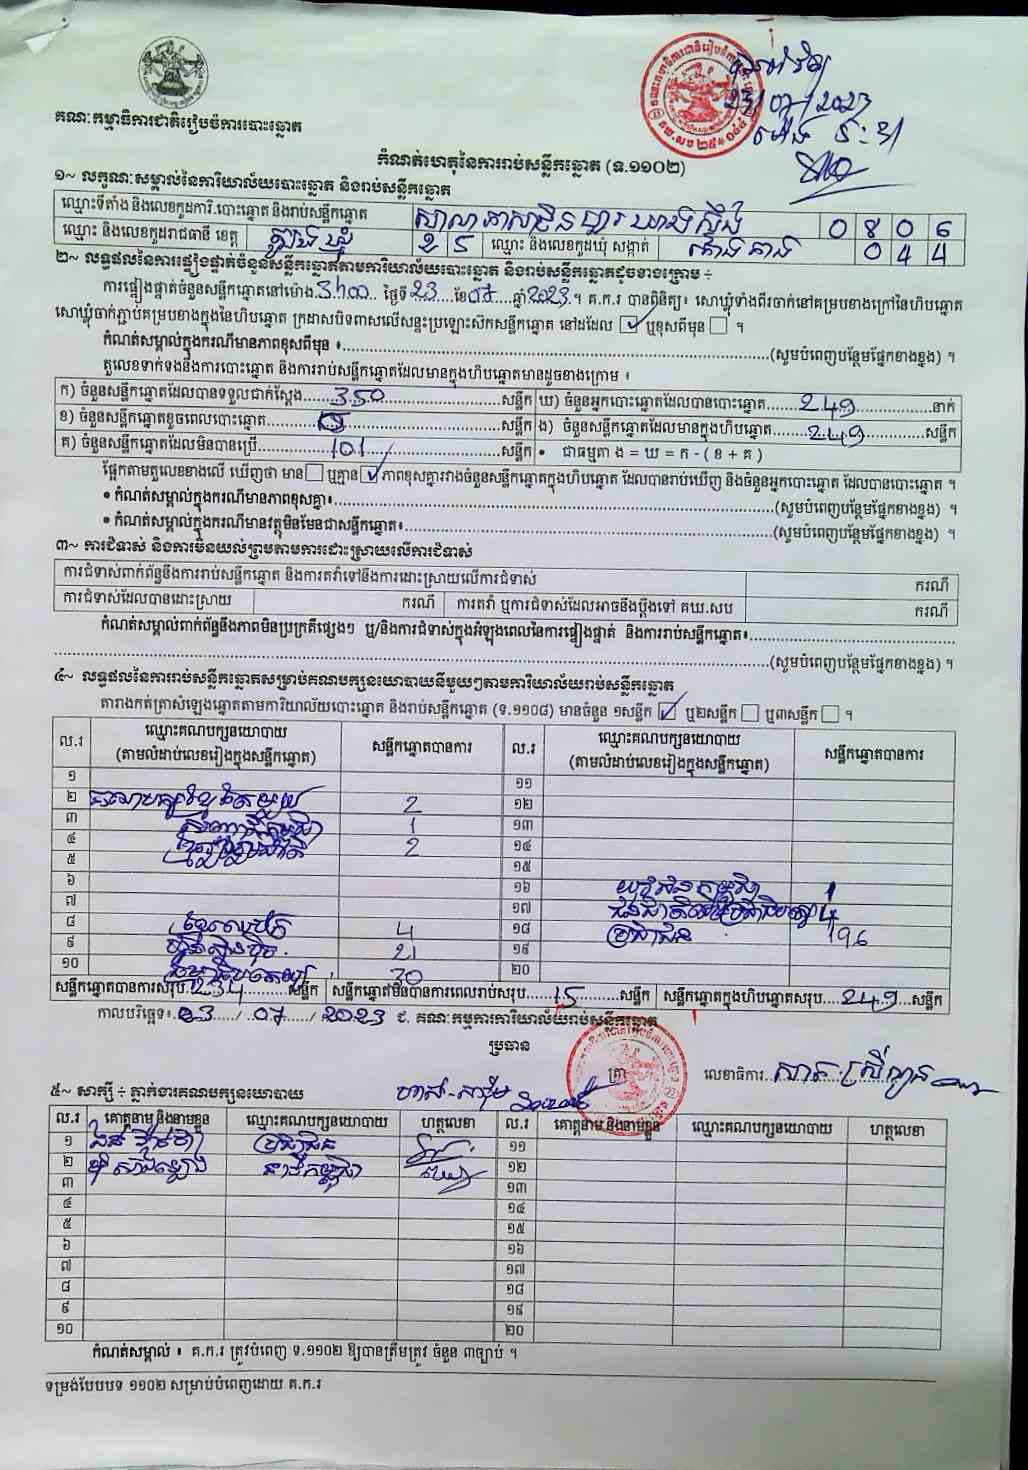 គណៈកម្មាធិការជាតិរៀបចំការបោះឆ្នោត
23/07/2023
កំណត់ហេតុនៃការរាប់សន្លឹកឆ្នោត (ទ.១១០២)
១~ លក្ខណៈសម្គាល់នៃការិយាល័យបោះឆ្នោត និងរាប់សន្លឹកឆ្នោត
ឈ្មោះទីតាំង និងលេខកូដការិ.បោះឆ្នោត និងរាប់សន្លឹកឆ្នោត 0 8 0 6
ឈ្មោះ និងលេខកូដរាជធានី ខេត្ត ត្បូងឃ្មុំ 2 5 ឈ្មោះ និងលេខកូដឃុំ សង្កាត់ 0 4 4
២~ លទ្ធផលនៃការផ្ទៀងផ្ទាត់ចំនួនសន្លឹកឆ្នោតតាមការិយាល័យបោះឆ្នោត និងរាប់សន្លឹកឆ្នោតដូចខាងក្រោម ÷
ការផ្ទៀងផ្ទាត់ចំនួនសន្លឹកឆ្នោតនៅម៉ោង 3h00 ថ្ងៃទី 23 ខែ 07 ឆ្នាំ 2023 ។ គ.ក.រ បានពិនិត្យ៖ សោឃ្លុំទាំងពីរចាក់នៅគម្របខាងក្រៅនៃហិបឆ្នោត
សោឃ្លុំចាក់ភ្ជាប់គម្របខាងក្នុងនៃហិបឆ្នោត ក្រដាសបិទពាសលើសន្ទះប្រឡោះស៊កសន្លឹកឆ្នោត នៅដដែល ☑ ឬខុសពីមុន ☐ ។
កំណត់សម្គាល់ក្នុងករណីមានភាពខុសពីមុន ៖ (សូមបំពេញបន្ថែមផ្នែកខាងខ្នង) ។
តួលេខទាក់ទងនឹងការបោះឆ្នោត និងការរាប់សន្លឹកឆ្នោតដែលមានក្នុងហិបឆ្នោតមានដូចខាងក្រោម ៖
ក) ចំនួនសន្លឹកឆ្នោតដែលបានទទួលជាក់ស្តែង 350 សន្លឹក ឃ) ចំនួនអ្នកបោះឆ្នោតដែលបានបោះឆ្នោត 249 នាក់
ខ) ចំនួនសន្លឹកឆ្នោតខូចពេលបោះឆ្នោត សន្លឹក ង) ចំនួនសន្លឹកឆ្នោតដែលមានក្នុងហិបឆ្នោត 249 សន្លឹក
គ) ចំនួនសន្លឹកឆ្នោតដែលមិនបានប្រើ 101 សន្លឹក • ជាធម្មតា ង = ឃ = ក - ( ខ + គ )
ផ្អែកតាមតួលេខខាងលើ ឃើញថា មាន ☐ ឬគ្មាន ☑ ភាពខុសគ្នារវាងចំនួនសន្លឹកឆ្នោតក្នុងហិបឆ្នោត ដែលបានរាប់ឃើញ និងចំនួនអ្នកបោះឆ្នោត ដែលបានបោះឆ្នោត ។
• កំណត់សម្គាល់ក្នុងករណីមានភាពខុសគ្នា៖ (សូមបំពេញបន្ថែមផ្នែកខាងខ្នង) ។
• កំណត់សម្គាល់ក្នុងករណីមានវត្ថុមិនមែនជាសន្លឹកឆ្នោត៖ (សូមបំពេញបន្ថែមផ្នែកខាងខ្នង) ។
៣~ ការជំទាស់ និងការមិនយល់ព្រមតាមការដោះស្រាយលើការជំទាស់
ការជំទាស់ពាក់ព័ន្ធនឹងការរាប់សន្លឹកឆ្នោត និងការតវ៉ាទៅនឹងការដោះស្រាយលើការជំទាស់ ករណី
ការជំទាស់ដែលបានដោះស្រាយ ករណី ការតវ៉ា ឬការជំទាស់ដែលអាចនឹងប្តឹងទៅ គឃ.សប ករណី
កំណត់សម្គាល់ពាក់ព័ន្ធនឹងភាពមិនប្រក្រតីផ្សេងៗ ឬ/និងការជំទាស់ក្នុងអំឡុងពេលនៃការផ្ទៀងផ្ទាត់ និងការរាប់សន្លឹកឆ្នោត៖
(សូមបំពេញបន្ថែមផ្នែកខាងខ្នង) ។
៤~ លទ្ធផលនៃការរាប់សន្លឹកឆ្នោតសម្រាប់គណបក្សនយោបាយនីមួយៗតាមការិយាល័យរាប់សន្លឹកឆ្នោត
តារាងកត់ត្រាសំឡេងឆ្នោតតាមការិយាល័យបោះឆ្នោត និងរាប់សន្លឹកឆ្នោត (ទ.១១០៨) មានចំនួន ១សន្លឹក ☑ ឬ២សន្លឹក ☐ ឬ៣សន្លឹក ☐ ។
ល.រ ឈ្មោះគណបក្សនយោបាយ (តាមលំដាប់លេខរៀងក្នុងសន្លឹកឆ្នោត) សន្លឹកឆ្នោតបានការ ល.រ ឈ្មោះគណបក្សនយោបាយ (តាមលំដាប់លេខរៀងក្នុងសន្លឹកឆ្នោត) សន្លឹកឆ្នោតបានការ
១ ១១
២ 2 ១២
៣ 1 ១៣
៤ 2 ១៤
៥ ១៥
៦ ១៦ 1
៧ ១៧ 4
៨ 4 ១៨ ប្រជាជន 196
៩ 21 ១៩
១០ 30 ២០
សន្លឹកឆ្នោតបានការសរុប 234 សន្លឹក សន្លឹកឆ្នោតមិនបានការពេលរាប់សរុប 15 សន្លឹក សន្លឹកឆ្នោតក្នុងហិបឆ្នោតសរុប 249 សន្លឹក
កាលបរិច្ឆេទ៖ 23 / 07 / 2023 ជ. គណៈកម្មការការិយាល័យរាប់សន្លឹកឆ្នោត
ប្រធាន
លេខាធិការ
៥~ សាក្សី ÷ ភ្នាក់ងារគណបក្សនយោបាយ
ល.រ គោត្តនាម និងនាមខ្លួន ឈ្មោះគណបក្សនយោបាយ ហត្ថលេខា ល.រ គោត្តនាម និងនាមខ្លួន ឈ្មោះគណបក្សនយោបាយ ហត្ថលេខា
១ ប្រជាជន ១១
២ ១២
៣ ១៣
៤ ១៤
៥ ១៥
៦ ១៦
៧ ១៧
៨ ១៨
៩ ១៩
១០ ២០
កំណត់សម្គាល់ ៖ គ.ក.រ ត្រូវបំពេញ ទ.១១០២ ឱ្យបានត្រឹមត្រូវ ចំនួន ៣ច្បាប់ ។
ទម្រង់បែបបទ ១១០២ សម្រាប់បំពេញដោយ គ.ក.រ